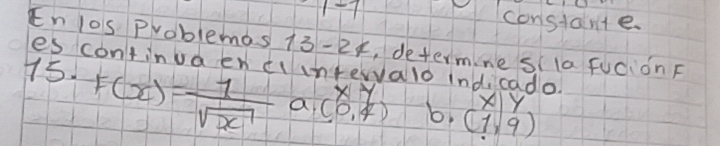 constante.
En los problemas 13-24, determine si la fución F
es continua en el intervalo indicado.
15. f(x) = 1/√x a. (0, 4) b. (1, 9)
x y x y